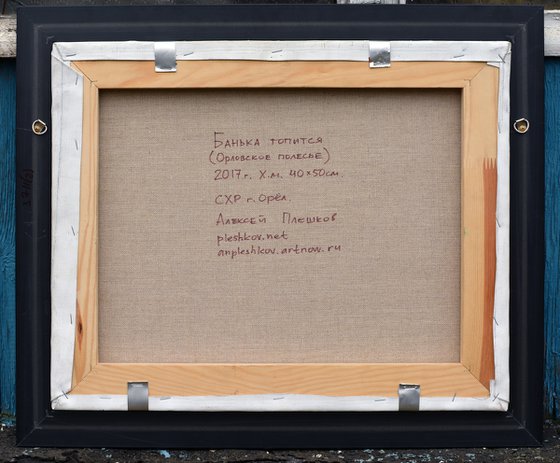 Банька топится
(Орловское полесье)
2017г. Х.м. 40×50см.
СХР г. Орёл.
Алексей Плешков
pleshkov.net
anpleshkov.artnow.ru